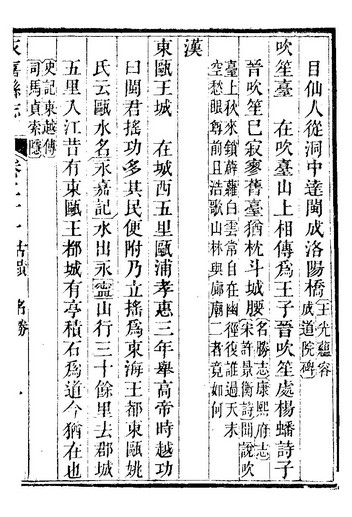 目仙人從洞中達閩成洛陽橋王先蘊容成道院碑
吹笙臺　在吹臺山上相傳爲王子晉吹笙處楊蟠詩子
晉吹笙已寂寥舊臺猶枕斗城腰名勝志康熙府志宋許景衡詩聞說吹
臺上秋來鎖薜蘿白雲常自在幽徑復誰過天末
空愁眼尊前且浩歌山林與廊廟二者竟如何
漢
東甌王城　在城西五里甌浦孝惠三年舉高帝時越功
曰閩君搖功多其民便附乃立搖爲東海王都東甌姚
氏云甌水名永嘉記水出永寧山行三十餘里去郡城
五里入江昔有東甌王都城有亭積石爲道今猶在也
史記東越傳司馬貞索隱
永嘉縣志　卷二十一古蹟　名勝